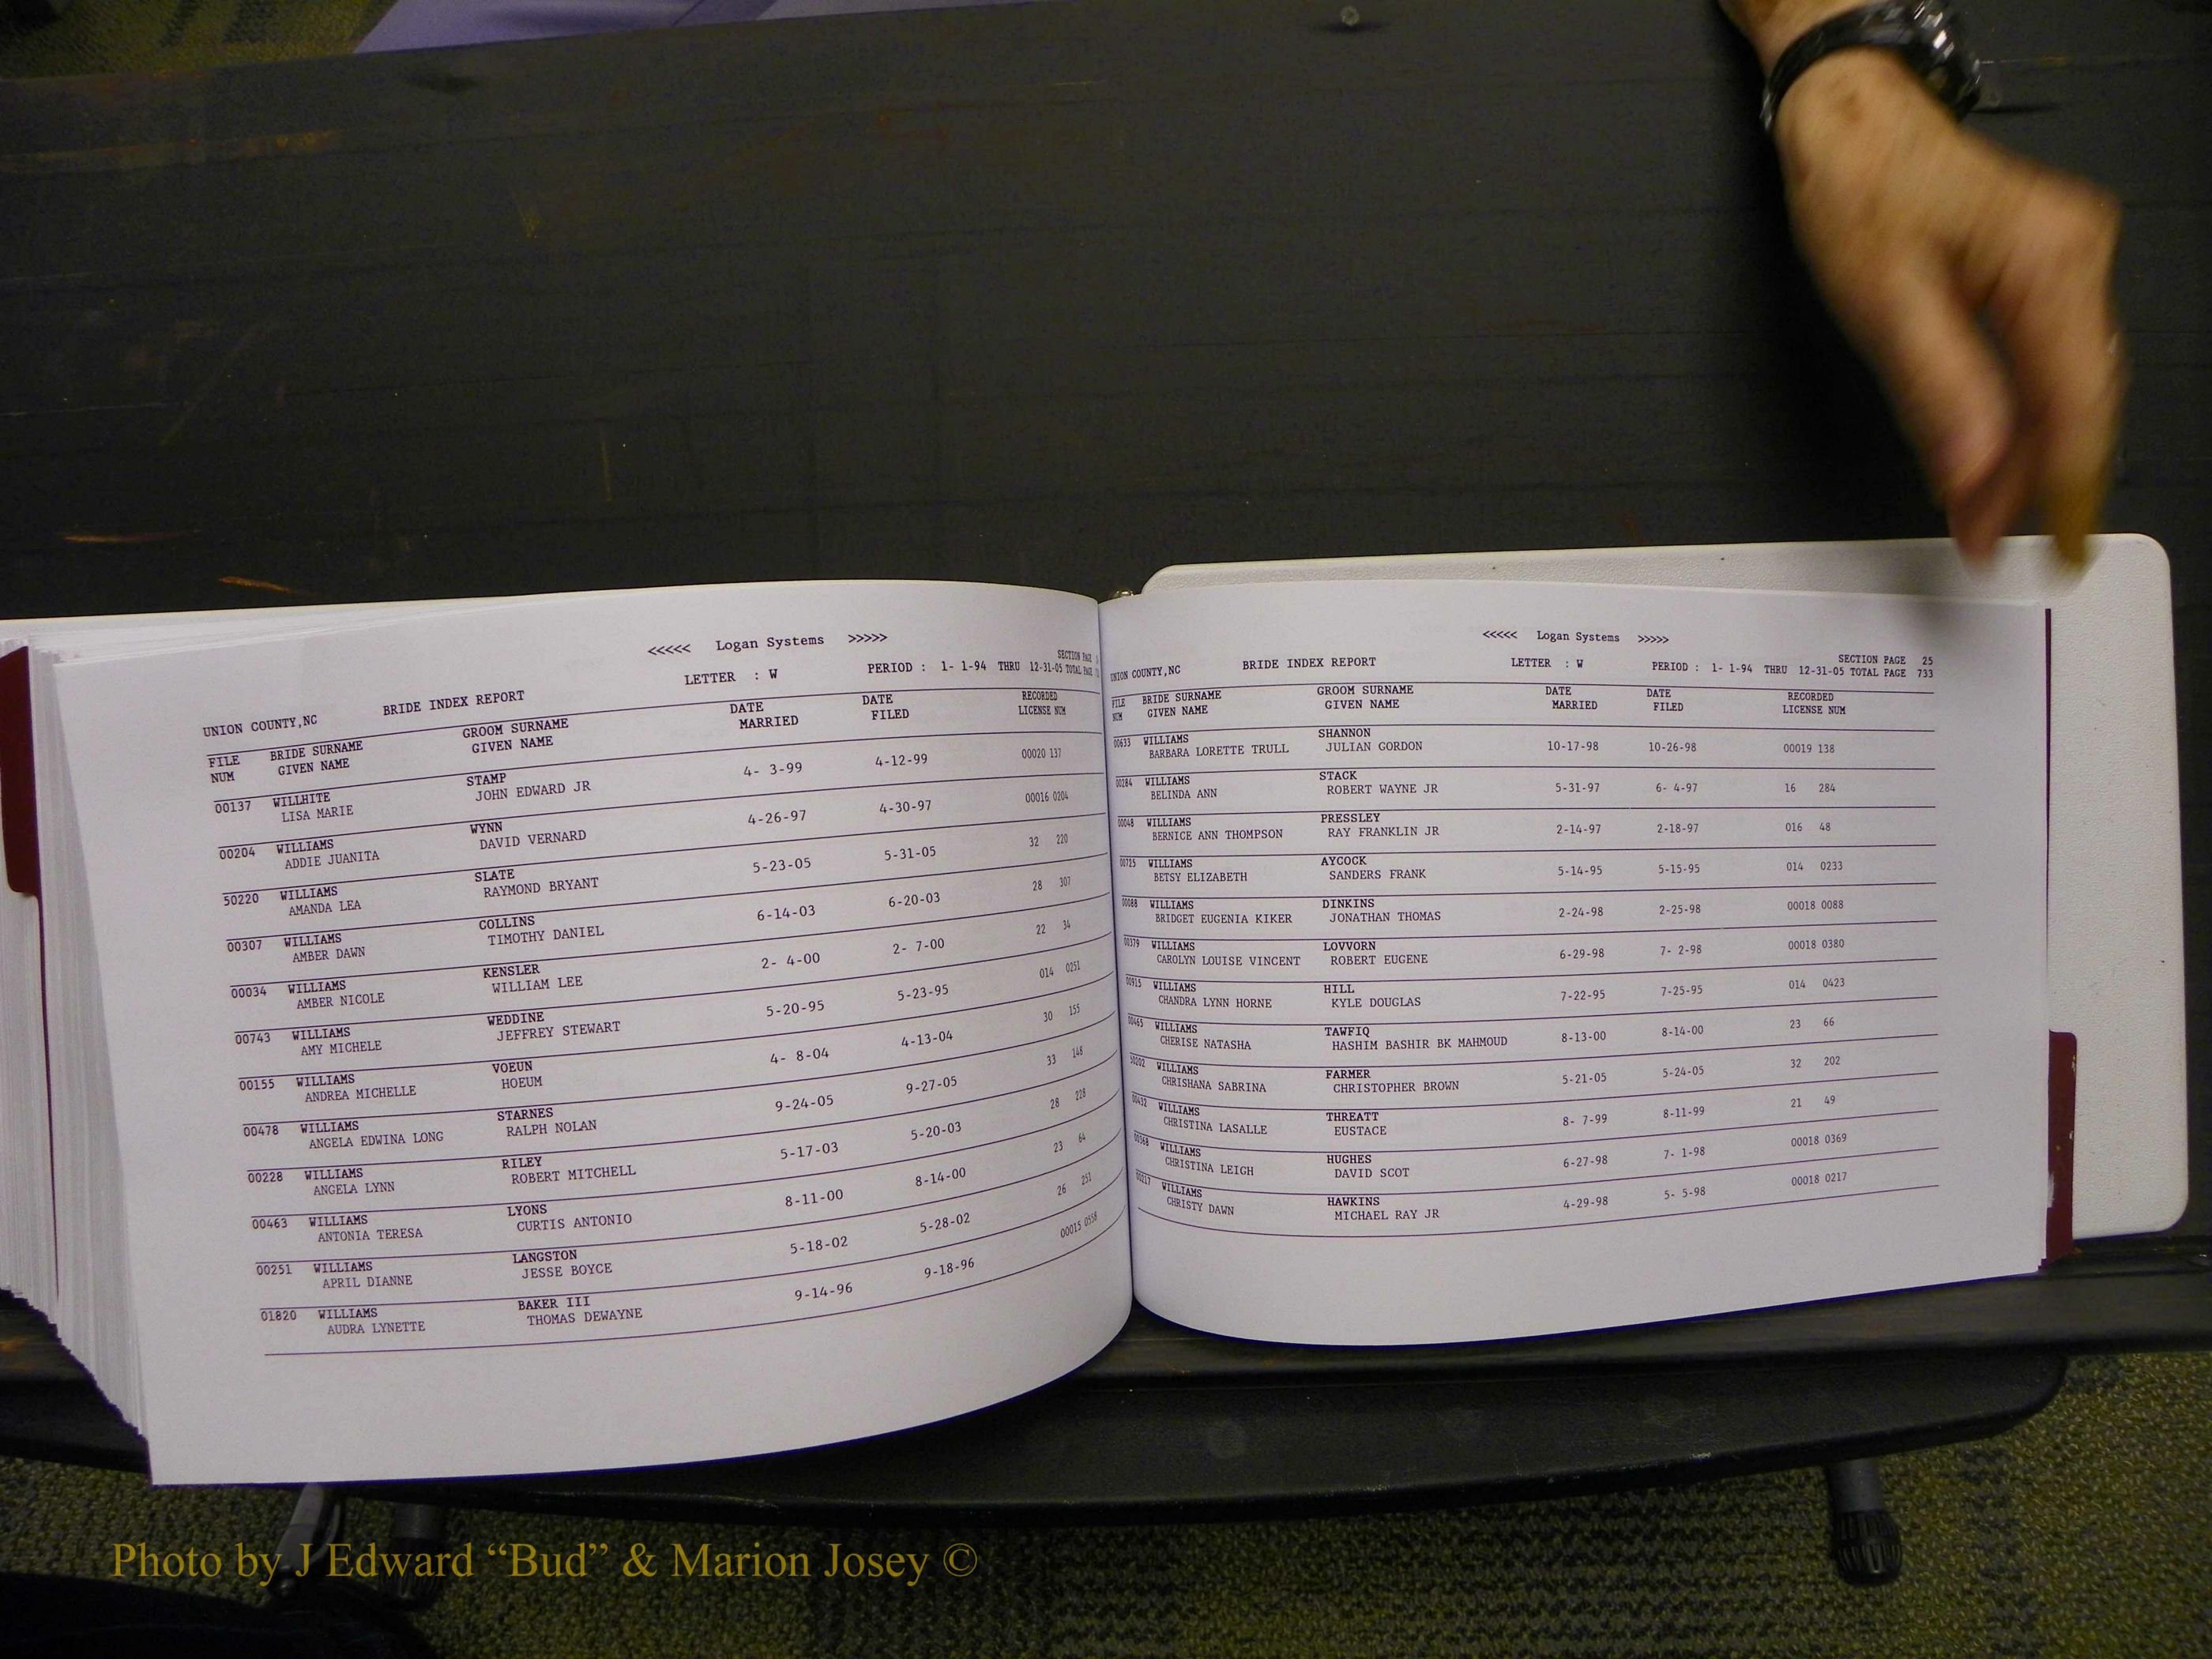 <<<<< Logan Systems >>>>>
UNION COUNTY,NC BRIDE INDEX REPORT LETTER : W PERIOD : 1- 1-94 THRU 12-31-05 SECTION PAGE
TOTAL PAGE
FILE BRIDE SURNAME GROOM SURNAME DATE DATE RECORDED
NUM GIVEN NAME GIVEN NAME MARRIED FILED LICENSE NUM
00137 WILLHITE STAMP 4- 3-99 4-12-99 00020 137
LISA MARIE JOHN EDWARD JR
00204 WILLIAMS WYNN 4-26-97 4-30-97 00016 0204
ADDIE JUANITA DAVID VERNARD
50220 WILLIAMS SLATE 5-23-05 5-31-05 32 220
AMANDA LEA RAYMOND BRYANT
00307 WILLIAMS COLLINS 6-14-03 6-20-03 28 307
AMBER DAWN TIMOTHY DANIEL
00034 WILLIAMS KENSLER 2- 4-00 2- 7-00 22 34
AMBER NICOLE WILLIAM LEE
00743 WILLIAMS WEDDINE 5-20-95 5-23-95 014 0251
AMY MICHELE JEFFREY STEWART
00155 WILLIAMS VOEUN 4- 8-04 4-13-04 30 155
ANDREA MICHELLE HOEUM
00478 WILLIAMS STARNES 9-24-05 9-27-05 33 148
ANGELA EDWINA LONG RALPH NOLAN
00228 WILLIAMS RILEY 5-17-03 5-20-03 28 228
ANGELA LYNN ROBERT MITCHELL
00463 WILLIAMS LYONS 8-11-00 8-14-00 23 64
ANTONIA TERESA CURTIS ANTONIO
00251 WILLIAMS LANGSTON 5-18-02 5-28-02 26 251
APRIL DIANNE JESSE BOYCE
01820 WILLIAMS BAKER III 9-14-96 9-18-96 00015 0558
AUDRA LYNETTE THOMAS DEWAYNE
<<<<< Logan Systems >>>>>
UNION COUNTY,NC BRIDE INDEX REPORT LETTER : W PERIOD : 1- 1-94 THRU 12-31-05 SECTION PAGE 25
TOTAL PAGE 733
FILE BRIDE SURNAME GROOM SURNAME DATE DATE RECORDED
NUM GIVEN NAME GIVEN NAME MARRIED FILED LICENSE NUM
00633 WILLIAMS SHANNON 10-17-98 10-26-98 00019 138
BARBARA LORETTE TRULL JULIAN GORDON
00284 WILLIAMS STACK 5-31-97 6- 4-97 16 284
BELINDA ANN ROBERT WAYNE JR
00048 WILLIAMS PRESSLEY 2-14-97 2-18-97 016 48
BERNICE ANN THOMPSON RAY FRANKLIN JR
00725 WILLIAMS AYCOCK 5-14-95 5-15-95 014 0233
BETSY ELIZABETH SANDERS FRANK
00088 WILLIAMS DINKINS 2-24-98 2-25-98 00018 0088
BRIDGET EUGENIA KIKER JONATHAN THOMAS
00379 WILLIAMS LOVVORN 6-29-98 7- 2-98 00018 0380
CAROLYN LOUISE VINCENT ROBERT EUGENE
00915 WILLIAMS HILL 7-22-95 7-25-95 014 0423
CHANDRA LYNN HORNE KYLE DOUGLAS
00465 WILLIAMS TAWFIQ 8-13-00 8-14-00 23 66
CHERISE NATASHA HASHIM BASHIR BK MAHMOUD
50202 WILLIAMS FARMER 5-21-05 5-24-05 32 202
CHRISHANA SABRINA CHRISTOPHER BROWN
00432 WILLIAMS THREATT 8- 7-99 8-11-99 21 49
CHRISTINA LASALLE EUSTACE
00368 WILLIAMS HUGHES 6-27-98 7- 1-98 00018 0369
CHRISTINA LEIGH DAVID SCOT
00217 WILLIAMS HAWKINS 4-29-98 5- 5-98 00018 0217
CHRISTY DAWN MICHAEL RAY JR
Photo by J Edward “Bud” & Marion Josey ©